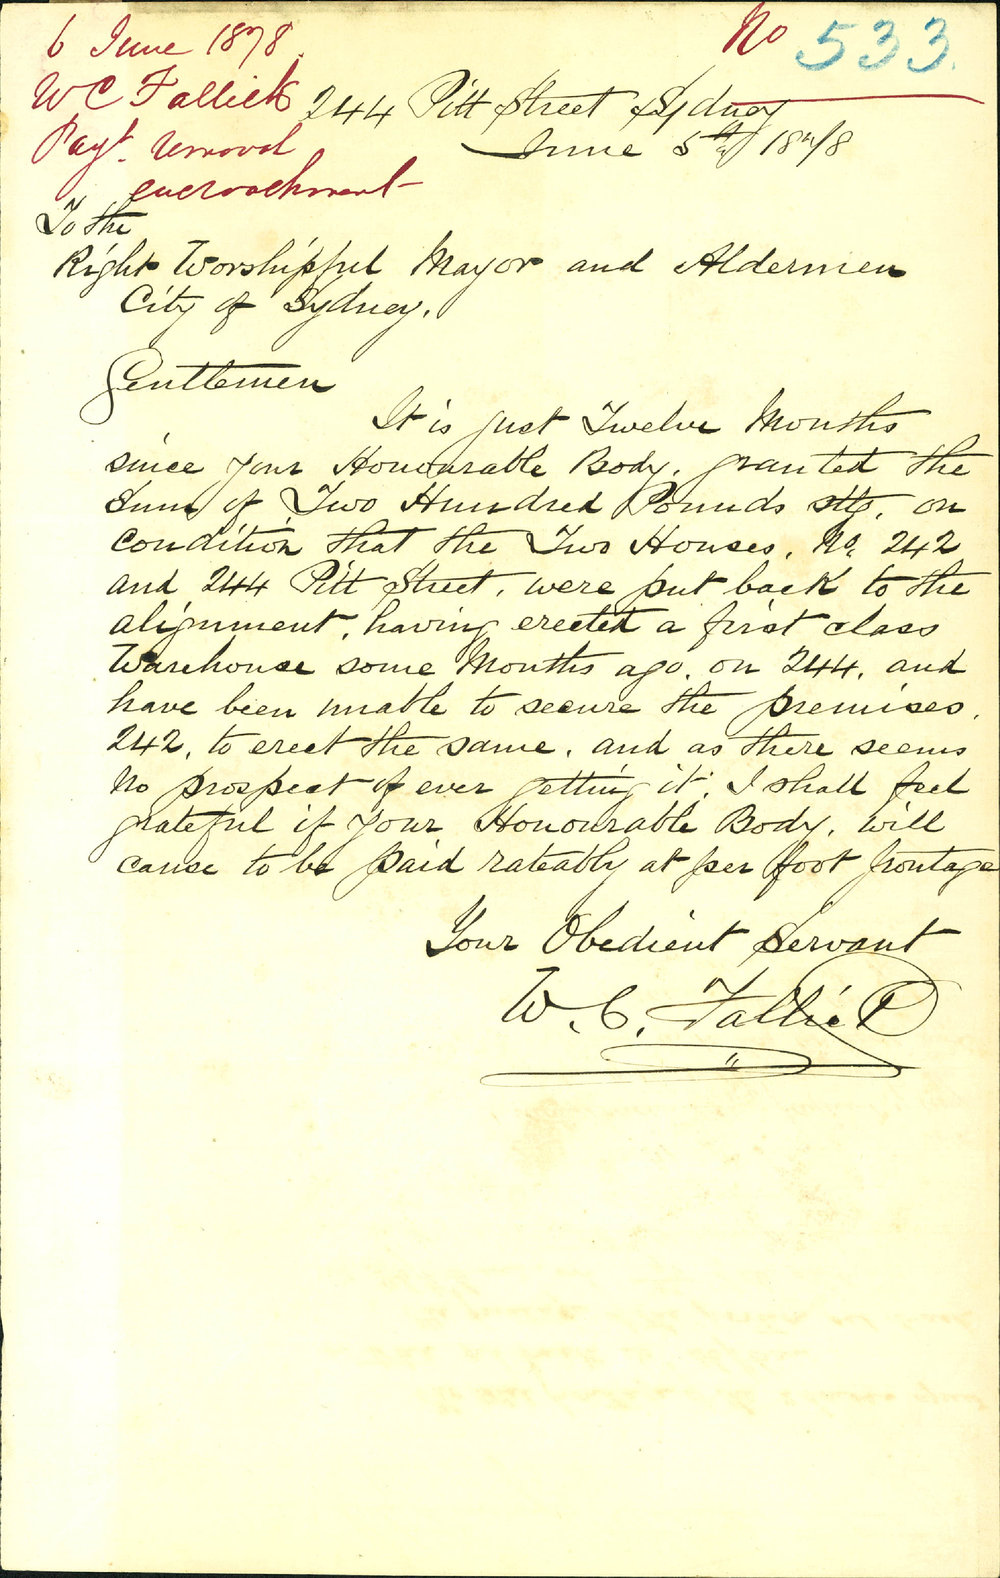 6 June 1878.
No 533.
W C Fallick
Payt. removal
encroachment
244 Pitt Street Sydney
June 5th 1878
To the
Right Worshipful Mayor and Aldermen
City of Sydney.
Gentlemen
It is just Twelve Months
since your Honourable Body, granted the
Sum of Two Hundred Pounds stg, on
condition that the Two Houses, No. 242
and 244 Pitt Street, were put back to the
alignment, having erected a first class
Warehouse some Months ago, on 244, and
have been unable to secure the premises,
242, to erect the same, and as there seems
No prospect of ever getting it, I shall feel
grateful if your Honourable Body, will
cause to be paid rateably at per foot frontage
Your Obedient Servant
W. C. Fallick